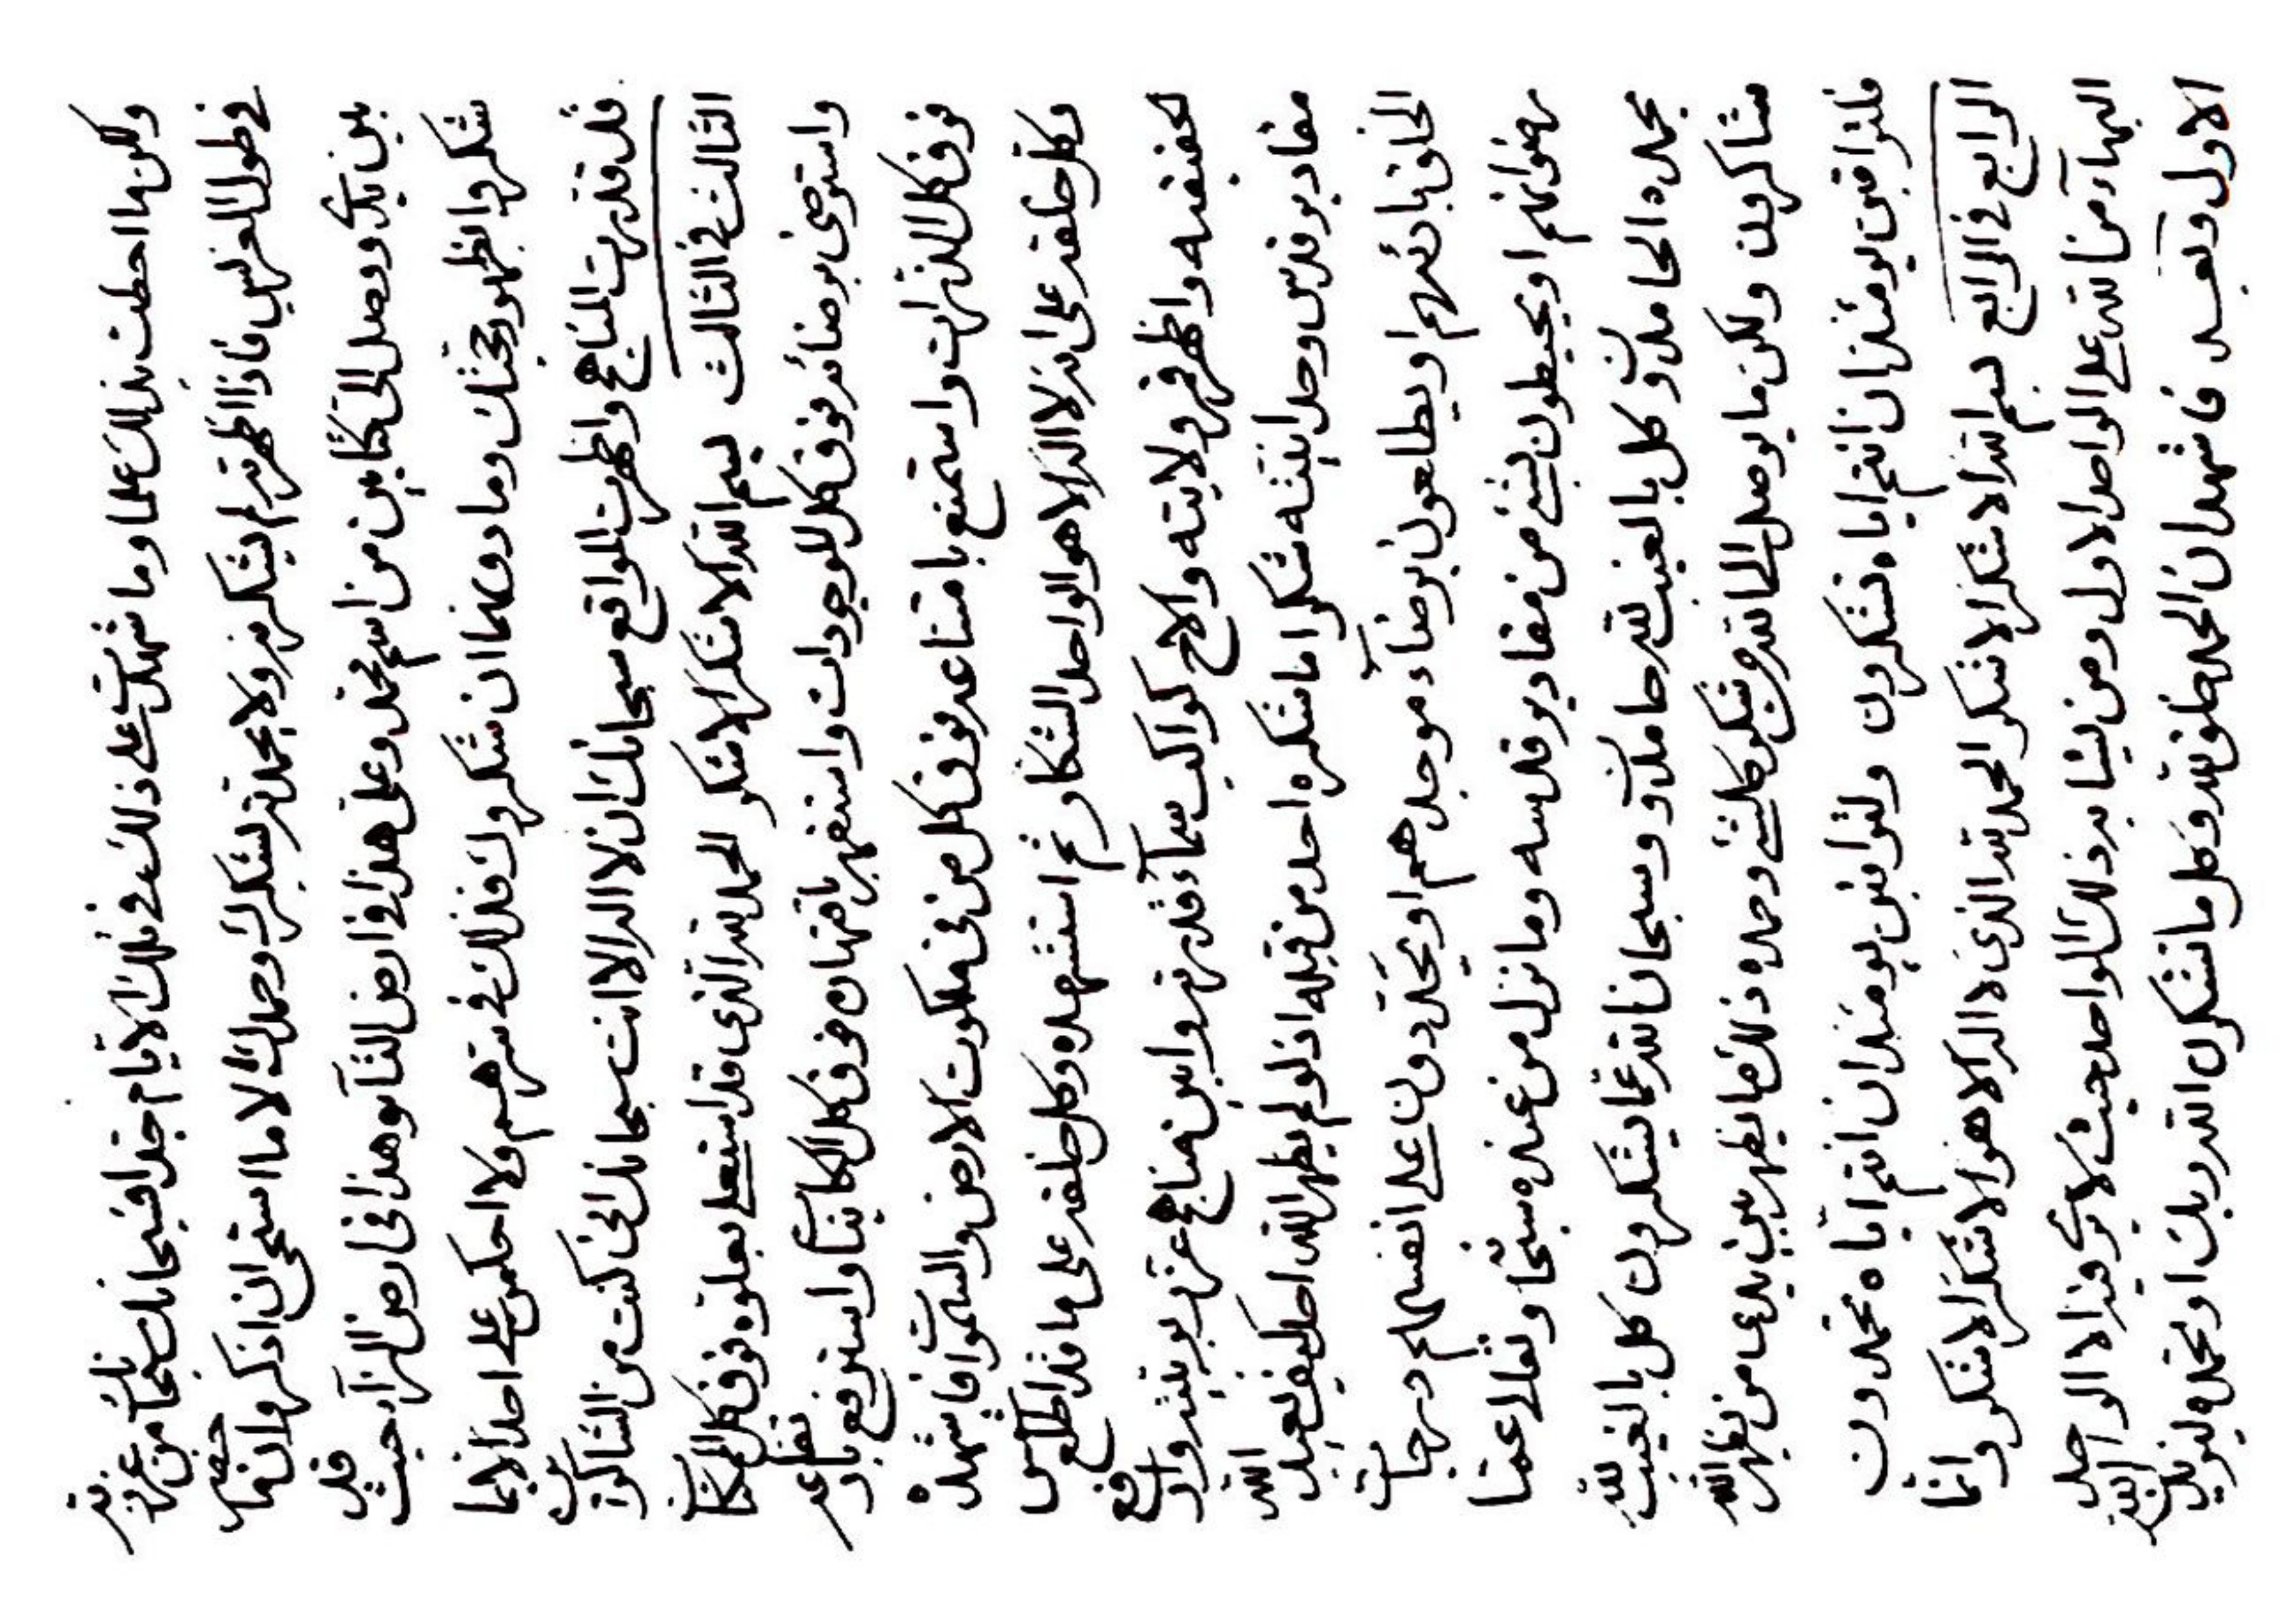 ولكن ما احطت بذلك علما وما شهدت على ذلك في تلك الايام جندا فسبحانك سبحانك من عزيز
في طول الغرس فاذا اظهرته لم يشكر ولا بحمدته بشكرك وحمدك الا ما استحي ان اذكره وانه
بين يديك ووصل الى كتاب من اسم محمد وعلى هذا في ارض التاء وهذا في ارض الزاء حيث قد
شكروا بظهور حجتك وما دونهما ان شكروك فذلك في سرهم ولا احكمن على احد انما
قد قدرت المناهج واظهرت المواقع سبحانك ان لا اله الا انت سبحانك اني كنت من الشاكرين
الثالث في الثالث بسم الله الاشكر الاشكر الحمد لله الذي قد استعلى بعلوه فوق كل الممكنات
واسترضى برضائه فوق كل الموجودات واستقهر باقتهاره فوق كل الكائنات واسترفع بارتفاعه
فوق كل الذرات واستمنع بامتناعه فوق كل من في ملكوت الارض والسموات فاشهده
وكل خلقه على انه لا اله الا هو الواحد الشكار ثم استشهده وكل خلقه على ما قد اطلع شمس
لحقيقته واظهر قمر ولايته والاح كواكب سماء قدرته وابن مناهج عز ربوبيته وارفع
مقادير قدس وحدانيته شكرا ما شكره احد من قبله اذ لو لم يظهر الله احد كيف يعبد الله
الخلق بارئهم او يطالعون برضاء موجدهم او يتحددون على انفسهم درجات
رضوانهم او يحيطون بشيء من مقادير قدسه وما نزل من عنده سبحانه وتعالى عما
بحمده الحامدون وكل بالغيب لله حامدون وسبحان الله عما يشكرون كل بالغيب لله
شاكرون ولكن ما يوصل الى الله من شكر كل شيء وحمده ذلك ما يظهر بين يدي من يظهره الله
فلتراقبن يومئذ ان انتم اياه تشكرون ولتراقبن يومئذ ان انتم اياه تحمدون
الرابع في الرابع بسم الله الاشكر الاشكر الحمد لله الذي لا اله الا هو الاشكر الاشكر وانما
البهاء من الله على الواحد الاول ومن يشابه ذلك الواحد حيث لا يرى فيه الا الواحد
الاول وبعد فاشهد ان الحمد خلق لله وكل ما تشكرن الله ربك او تحمده